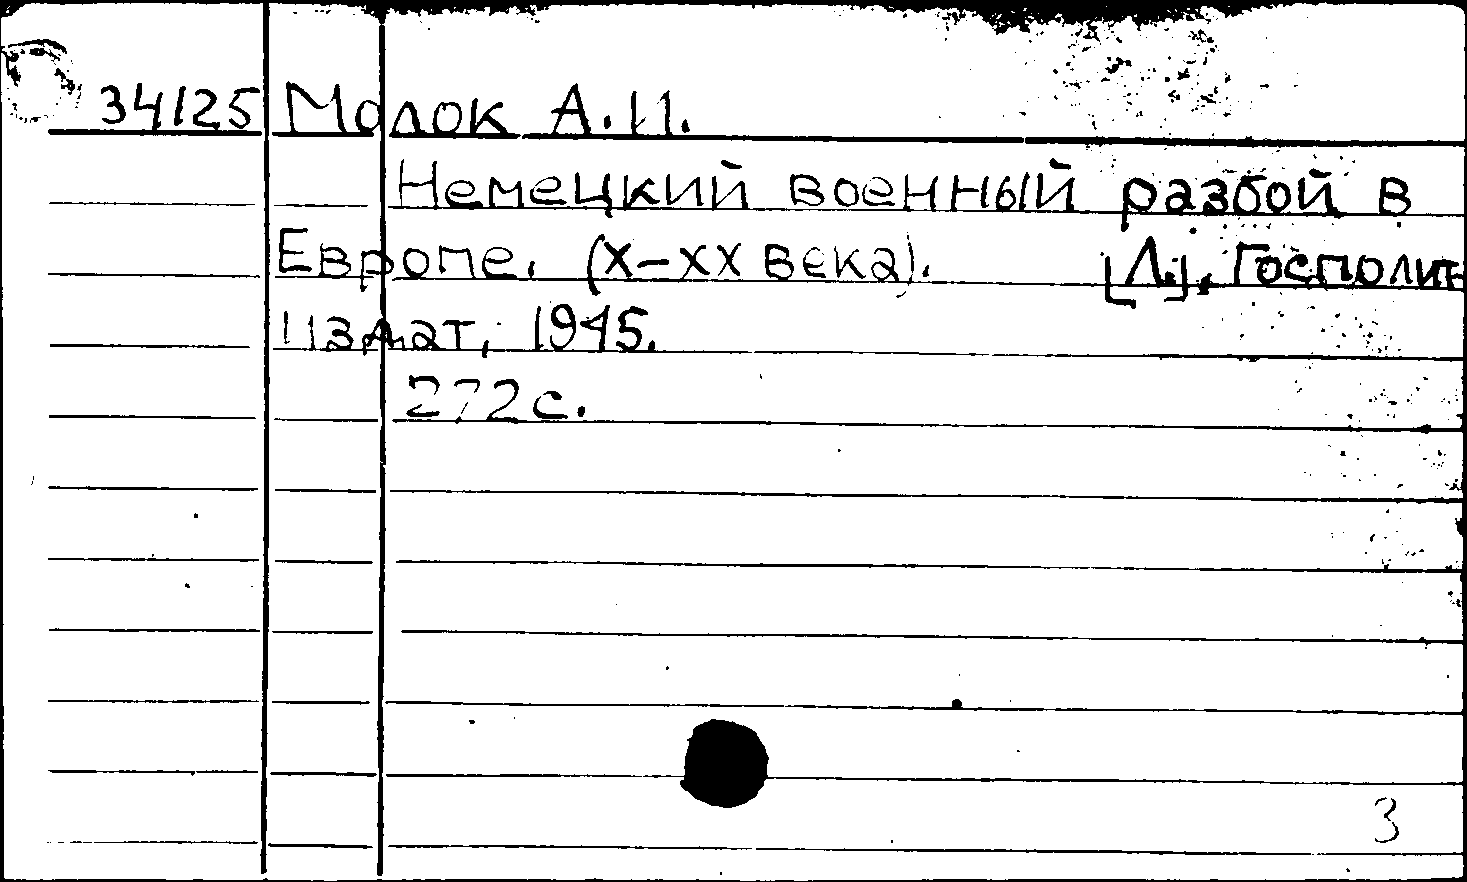 34125 Молок А.И.
Немецкий военный разбой в
Европе. (X–XX века). [Л.], Госполит-
издат, 1945.
272 с.
3